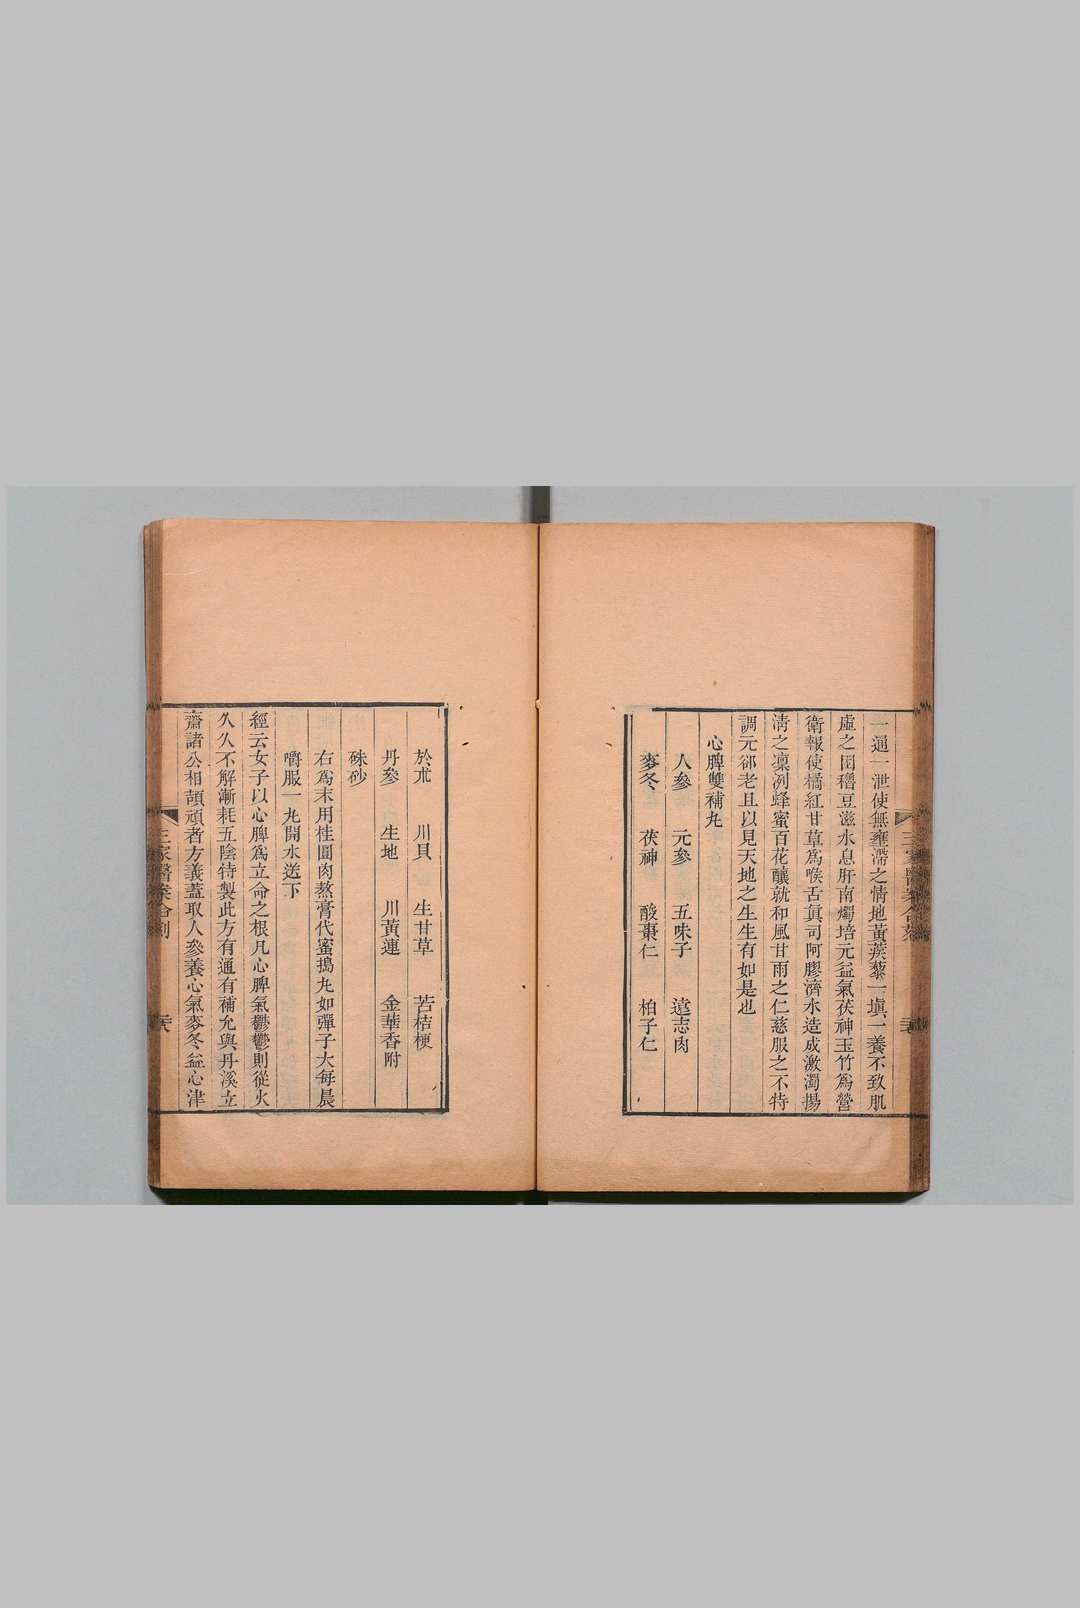 一通一泄使無壅滯之情地黃蒺藜一塡一養不致肌
虛之困穭豆滋水息肝南燭培元益氣茯神玉竹爲營
衛報使橘紅甘草爲喉舌眞司阿膠濟水造成激濁揚
淸之凜冽蜂蜜百花釀就和風甘雨之仁慈服之不特
調元郤老且以見天地之生生有如是也
心脾雙補丸
人參 元參 五味子 遠志肉
麥冬 茯神 酸棗仁 柏子仁
於朮 川貝 生甘草 苦桔梗
丹參 生地 川黃連 金華香附
硃砂
右爲末用桂圓肉熬膏代蜜搗丸如彈子大每晨
嚼服一丸開水送下
經云女子以心脾爲立命之根凡心脾氣鬱鬱則從火
久久不解漸耗五陰特製此方有通有補允與丹溪立
齋諸公相頡頏者方義蓋取人參養心氣麥冬益心津
三家醫案合刻